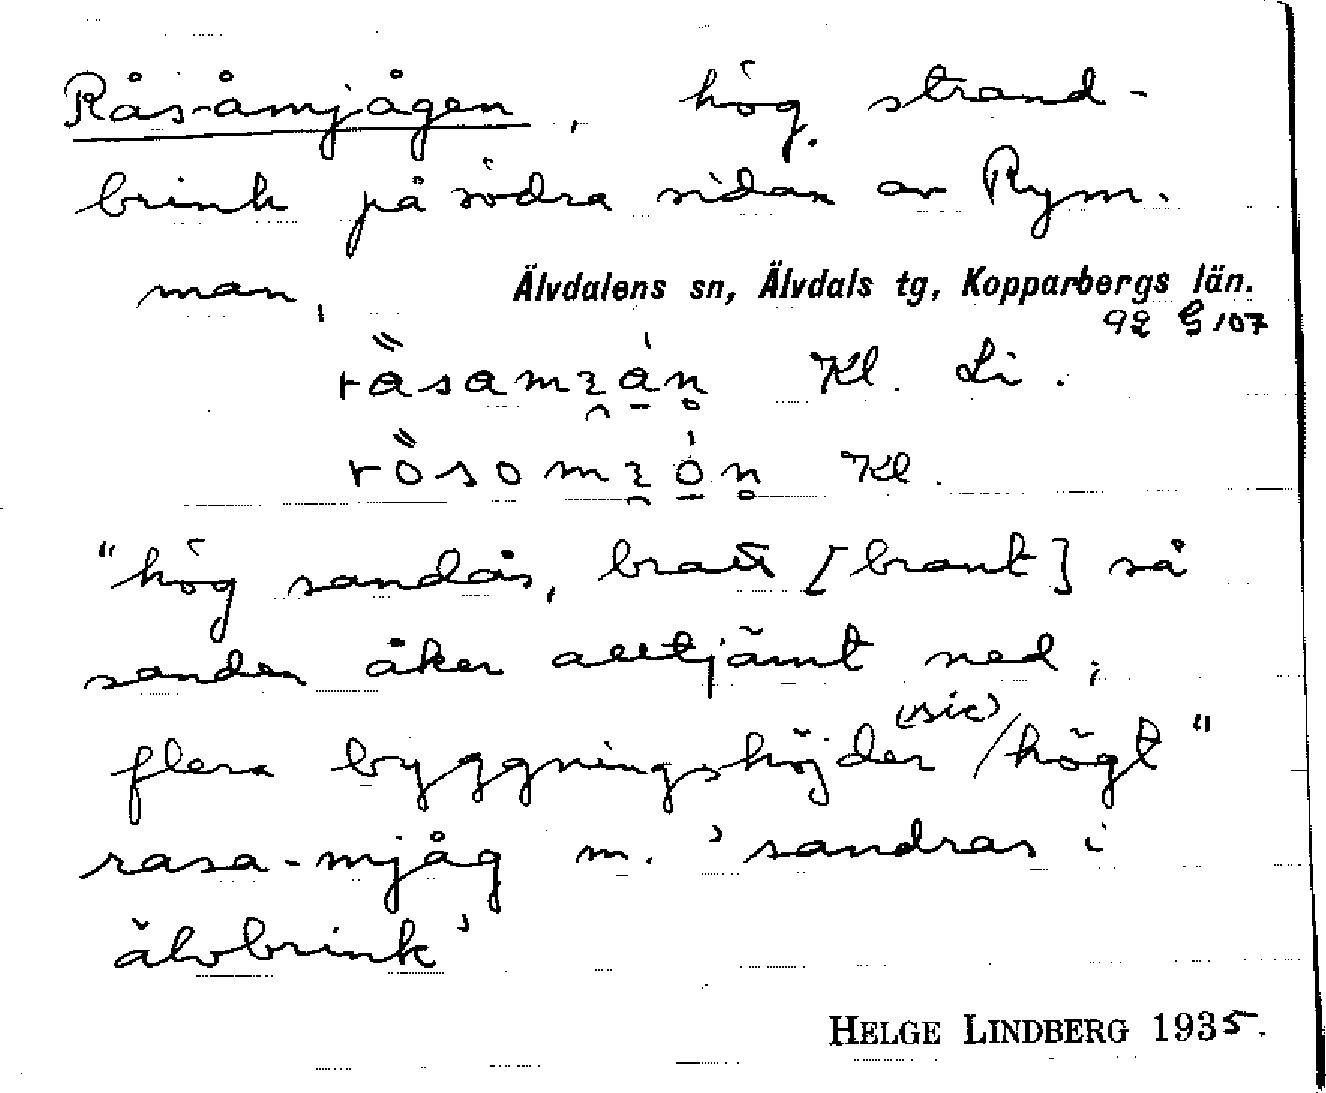 Rås-åmjågen, hög strand-
brink på södra sidan av Rym-
man,
Älvdalens sn, Älvdals tg, Kopparbergs län.
92 G 107
Kl. Li.
Kl.
"hög sandås, bratt [brant] så
sanden åker alltjämt ned,
flera byggningshöjder (sic) / högt"
rasa-mjåg m. 'sandras i
älvbrink'
HELGE LINDBERG 1935.